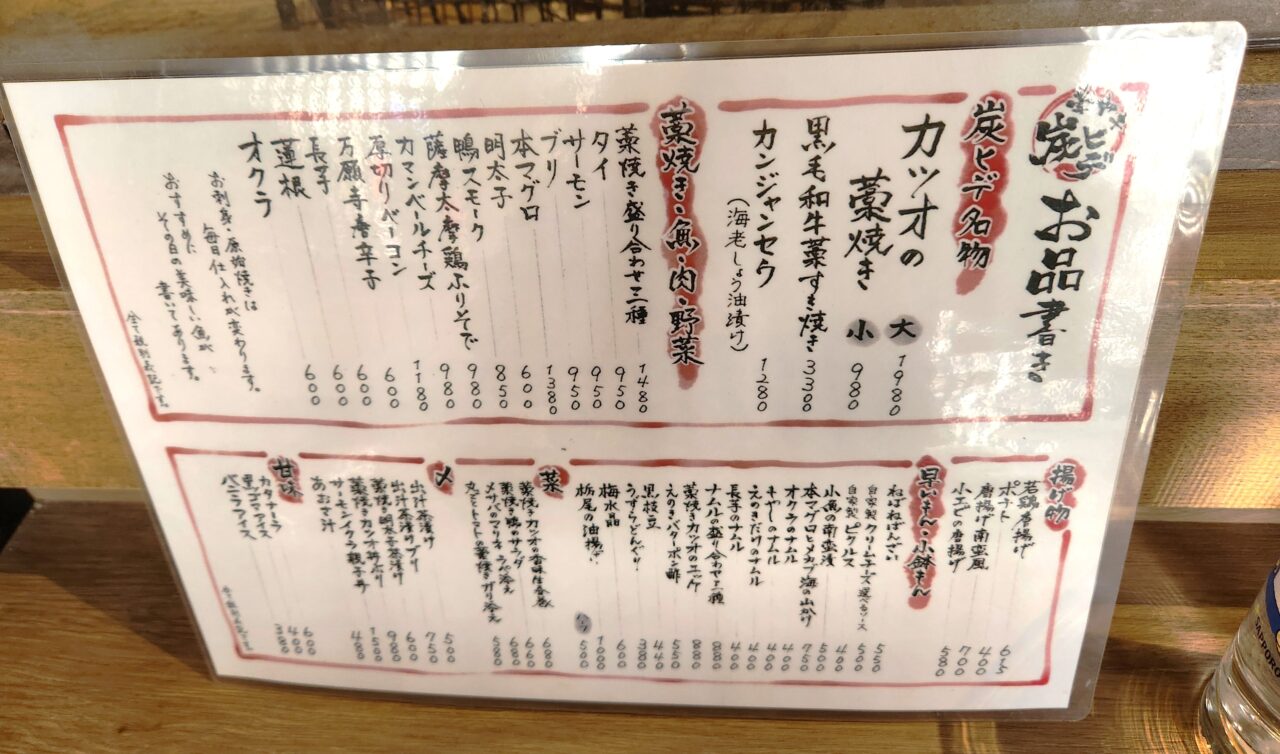 炭ヒデ
お品書き
炭ヒデ名物
カツオの
藁焼き
大 1980
小 980
黒毛和牛藁すき焼き 3300
カンジャンセウ 1280
(海老しょう油漬け)
藁焼き・魚・肉・野菜
藁焼き盛り合わせ三種 1480
タイ 950
サーモン 950
ブリ 950
本マグロ 1380
明太子 600
鴨スモーク 850
薩摩大摩鶏ふりそで 980
カマンベールチーズ 980
厚切りベーコン 1180
万願寺唐辛子 600
長芋 600
蓮根 600
オクラ 600
お刺身・原始焼きは
毎日仕入れが変わります。
おすすめに
その日の美味しい魚が
書いてあります。
全て税別表記です。
揚げ物
若鶏唐揚げ 615
ポテト 400
唐揚げ南蛮風 700
小エビの唐揚げ 580
早いもん・小鉢もん
ねばねばばんざい 550
自家製クリームチーズ 選べるソース 500
自家製ピクルス 400
小魚の南蛮漬 500
本マグロとメカブ海の山かけ 750
オクラのナムル 400
もやしのナムル 400
えのきだけのナムル 400
長芋のナムル 400
ナムルの盛り合わせ三種 880
藁焼きカツオのユッケ 880
えのきバターポン酢 550
黒枝豆 440
うずらどんぐり 380
梅水晶 600
栃尾の油揚げ 1000
ハーフ 500
菜
藁焼きカツオの香味生春巻 680
藁焼き鴨のサラダ 660
メサバのマリネ ラペ添え 680
丸ごとトマトの藁焼きガリ添え 580
〆
出汁茶漬け 500
出汁茶漬けブリ 750
藁焼き明太子茶漬け 980
藁焼きカツオ丼ぶり 1500
サーモンイクラ親子丼
あおさ汁 480
甘味
カタラーナ 600
黒ゴマアイス 400
バニラアイス 380
全て税別表記です。
SAPPORO